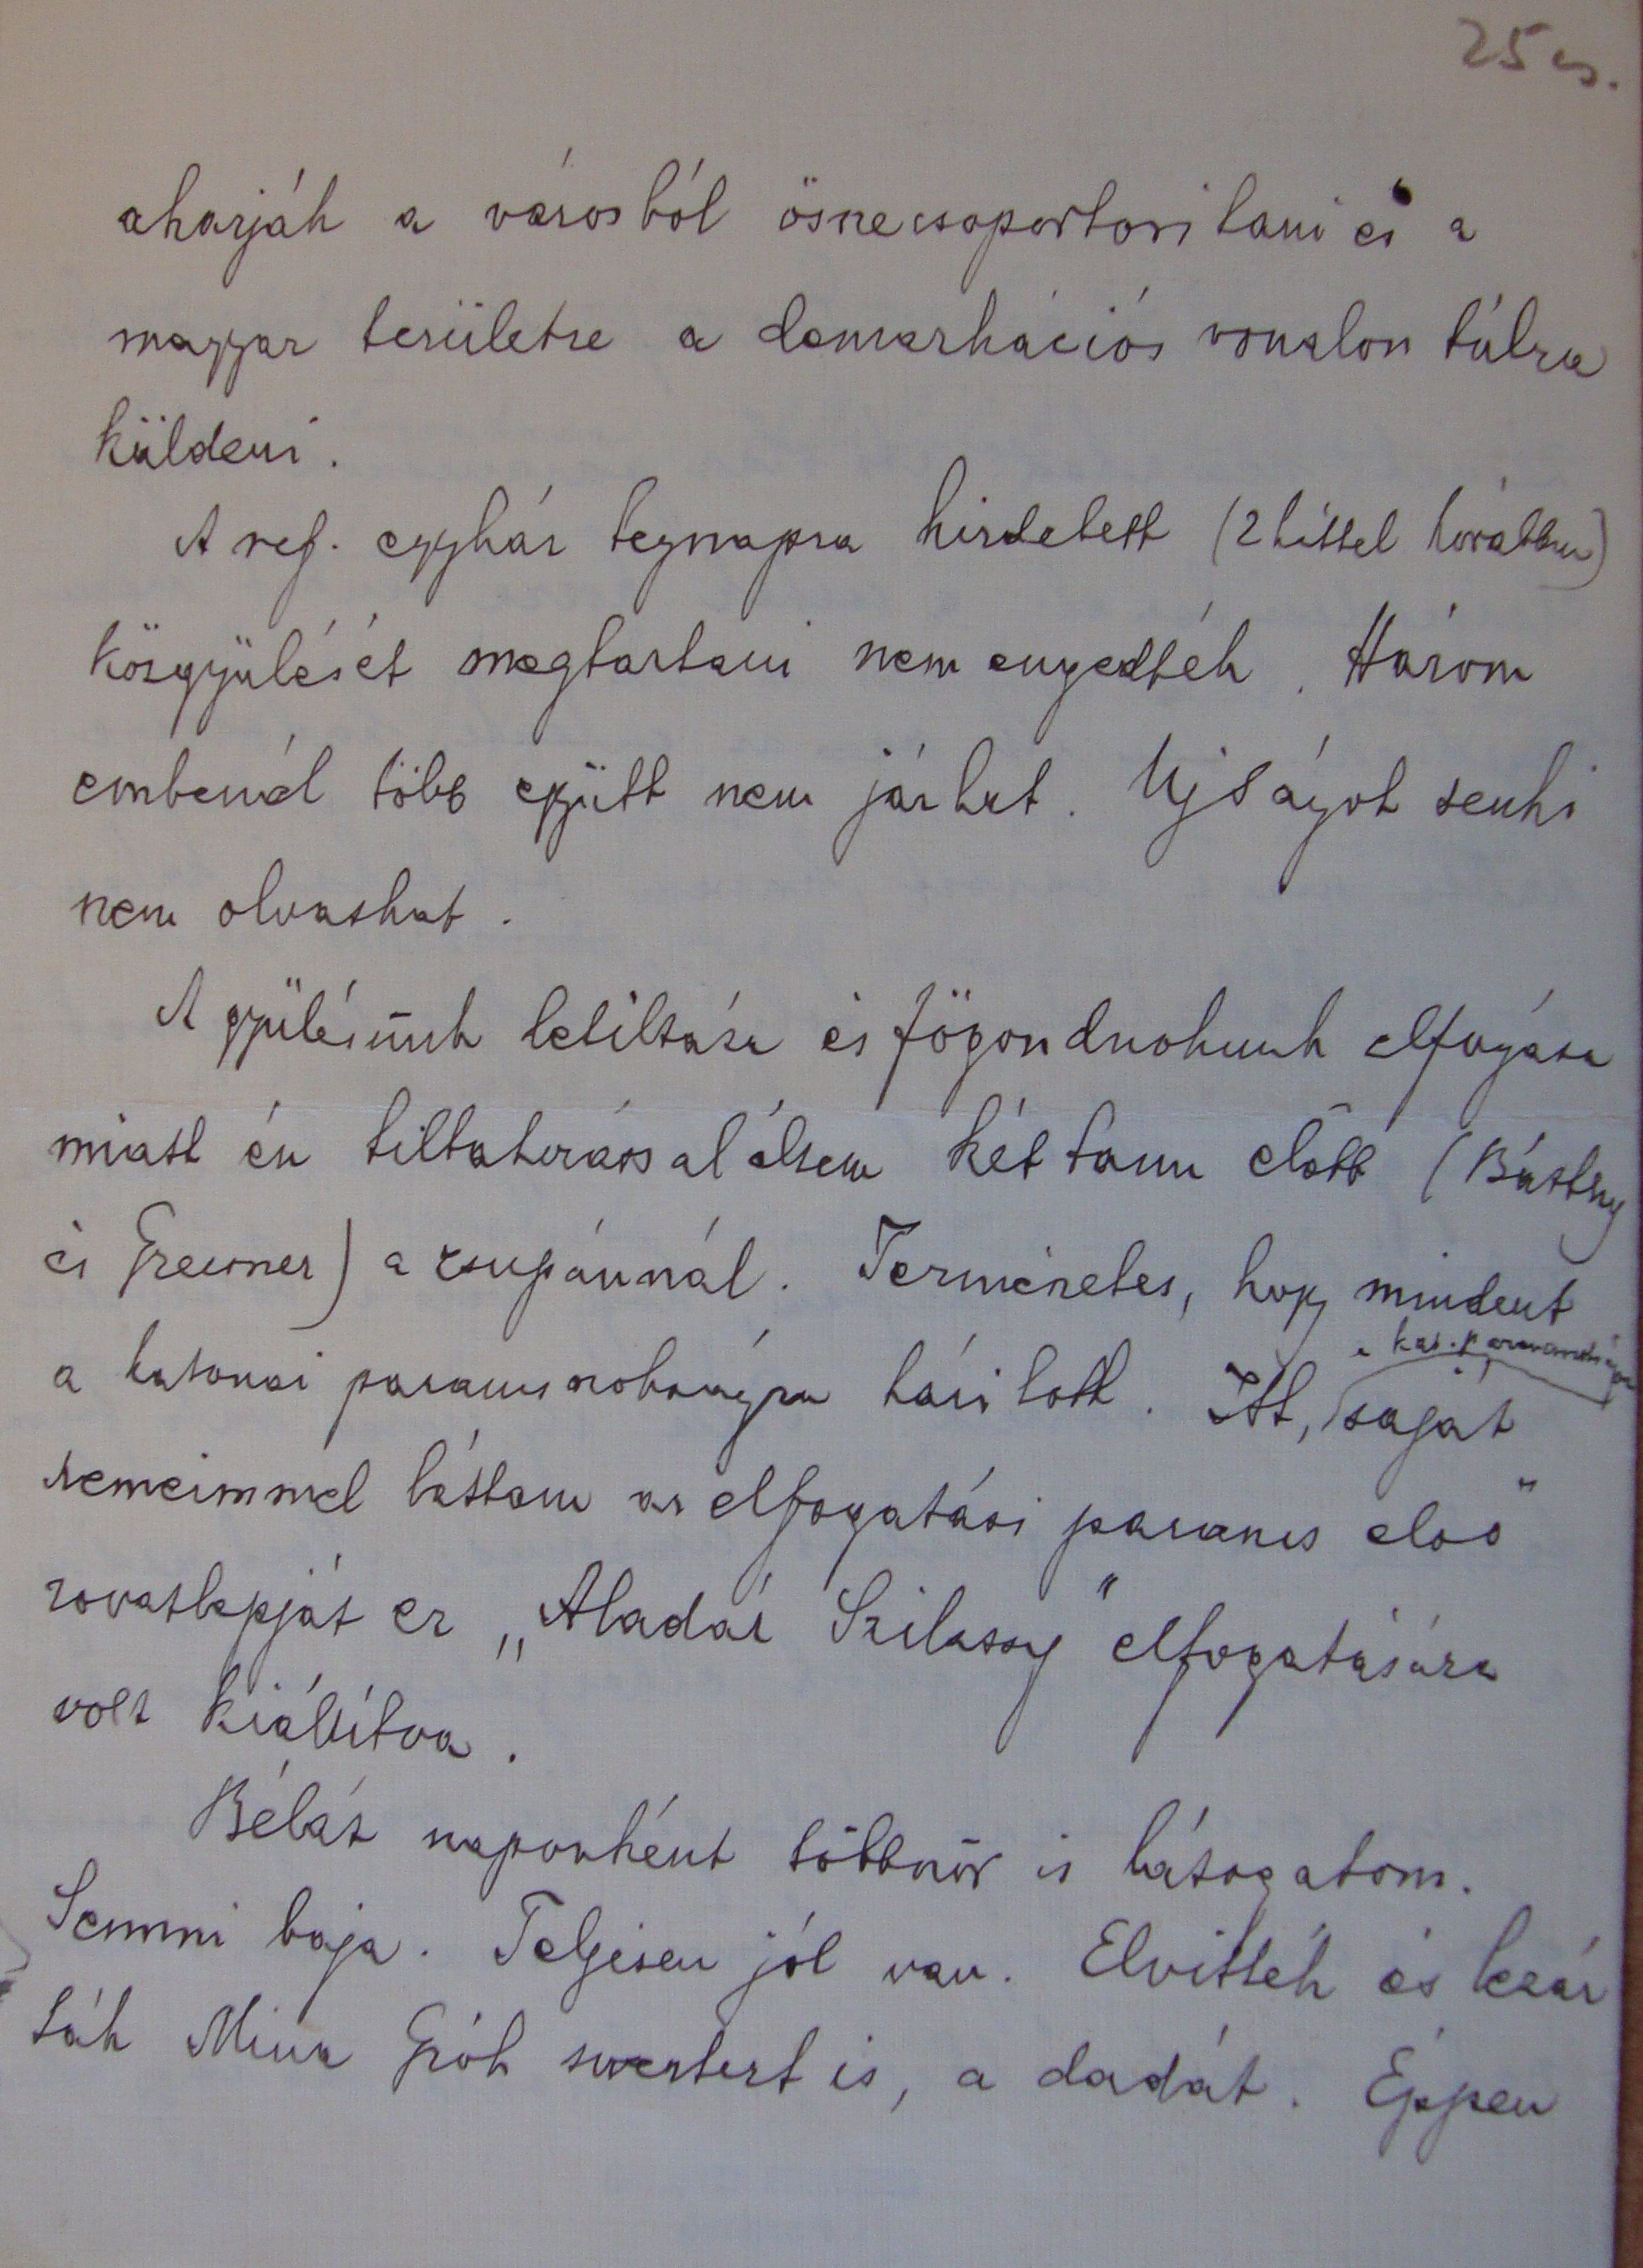 25 es.
akarják a városból összecsoportositani és a
magyar területre a demarkációs vonalon túlra
küldeni.
A ref. egyház tegnapra hirdetett (2 héttel korábban)
közgyülését megtartani nem engedték. Három
embernél több együtt nem járhat. Ujságot senki
nem olvashat.
A gyülésünk letiltása és fögondnokunk elfogása
miatt én tiltakozással éltem két tanu elött (Báthy
és Greiner) a zsupánnál. Természetes, hogy mindent
a katonai parancsnokságra hárított. Itt, saját
a kat. parancsnokságon
szemeimmel láttam az elfogatási parancs első
rovatlapját ez „Aladár Szilassy" elfogatására
volt kiállítva.
Bélát naponként többször is látogatom.
Semmi baja. Teljesen jól van. Elvitték és lezár
ták Mina Gróh svesztert is, a dadát. Éppen